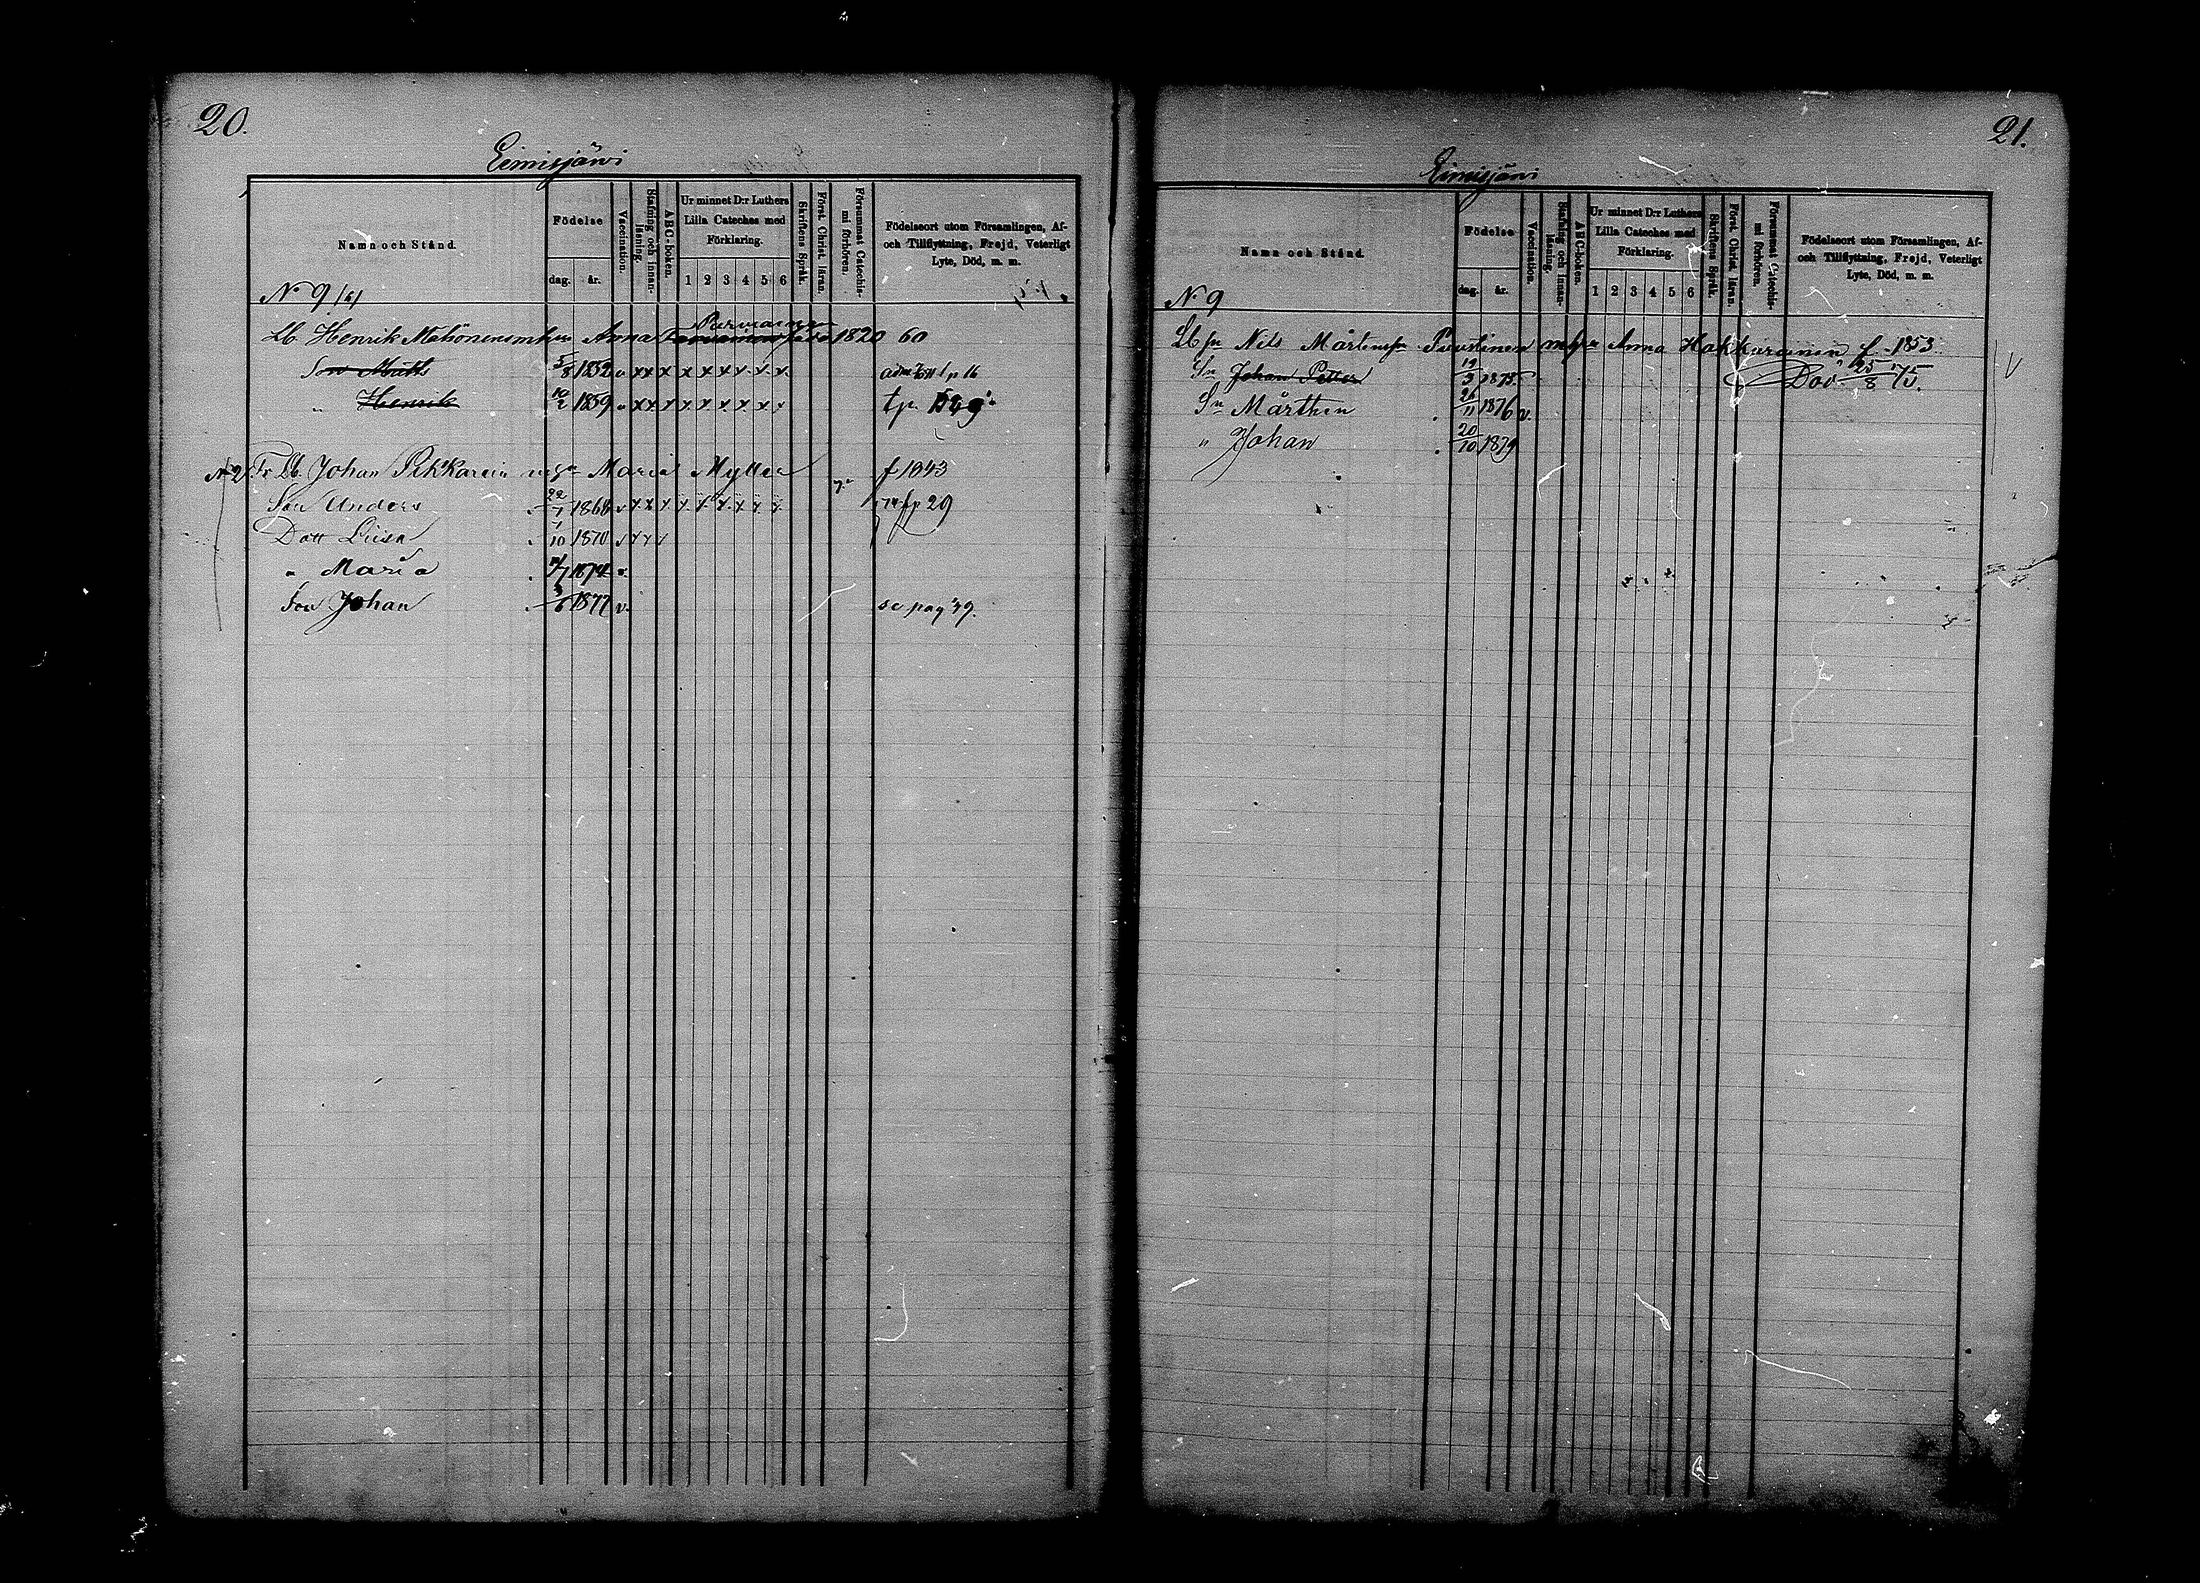 20.
Eimisjärvi
Namn och Stånd.
Födelse
dag. år.
Vaccination.
Stafning och innanläsning.
ABC-boken.
Ur minnet D:r Luthers Lilla Cateches med Förklaring.
1 2 3 4 5 6
Skriftens Språk.
Först. Christ. läran.
Försummat Catechismi förhören.
Födelseort utom Församlingen, Af- och Tillflyttning, Frejd, Veterligt Lyte, Död, m. m.
N 9
Lb. Henrik Matiöinen Anna 1820 60
Son Matts 5/8 1852 v x x x x x x x x x p 16
" Henrik 10/2 1859 x x x x x x x x x tp.
N 2 Lb. Johan Pikkarein Maria Myller f 1843
Son Anders 22/1 1868 v x x x x x x x x p 29
Dott Lisa 1/10 1870
" Maria 1874
Son Johan 6 1877 v. se pag 49.
21.
Eimisjärvi
Namn och Stånd.
Födelse
dag. år.
Vaccination.
Stafning och innanläsning.
ABC-boken.
Ur minnet D:r Luthers Lilla Cateches med Förklaring.
1 2 3 4 5 6
Skriftens Språk.
Först. Christ. läran.
Försummat Catechismi förhören.
Födelseort utom Församlingen, Af- och Tillflyttning, Frejd, Veterligt Lyte, Död, m. m.
N 9
Lb sn Nils Mårtensn Puustinen Anna Hakkarainen f 1853
Sn Johan Petter 19/3 1875 Död 25/8 75.
Sn Mårthen 26/11 1876 v.
" Johan 20/10 1879